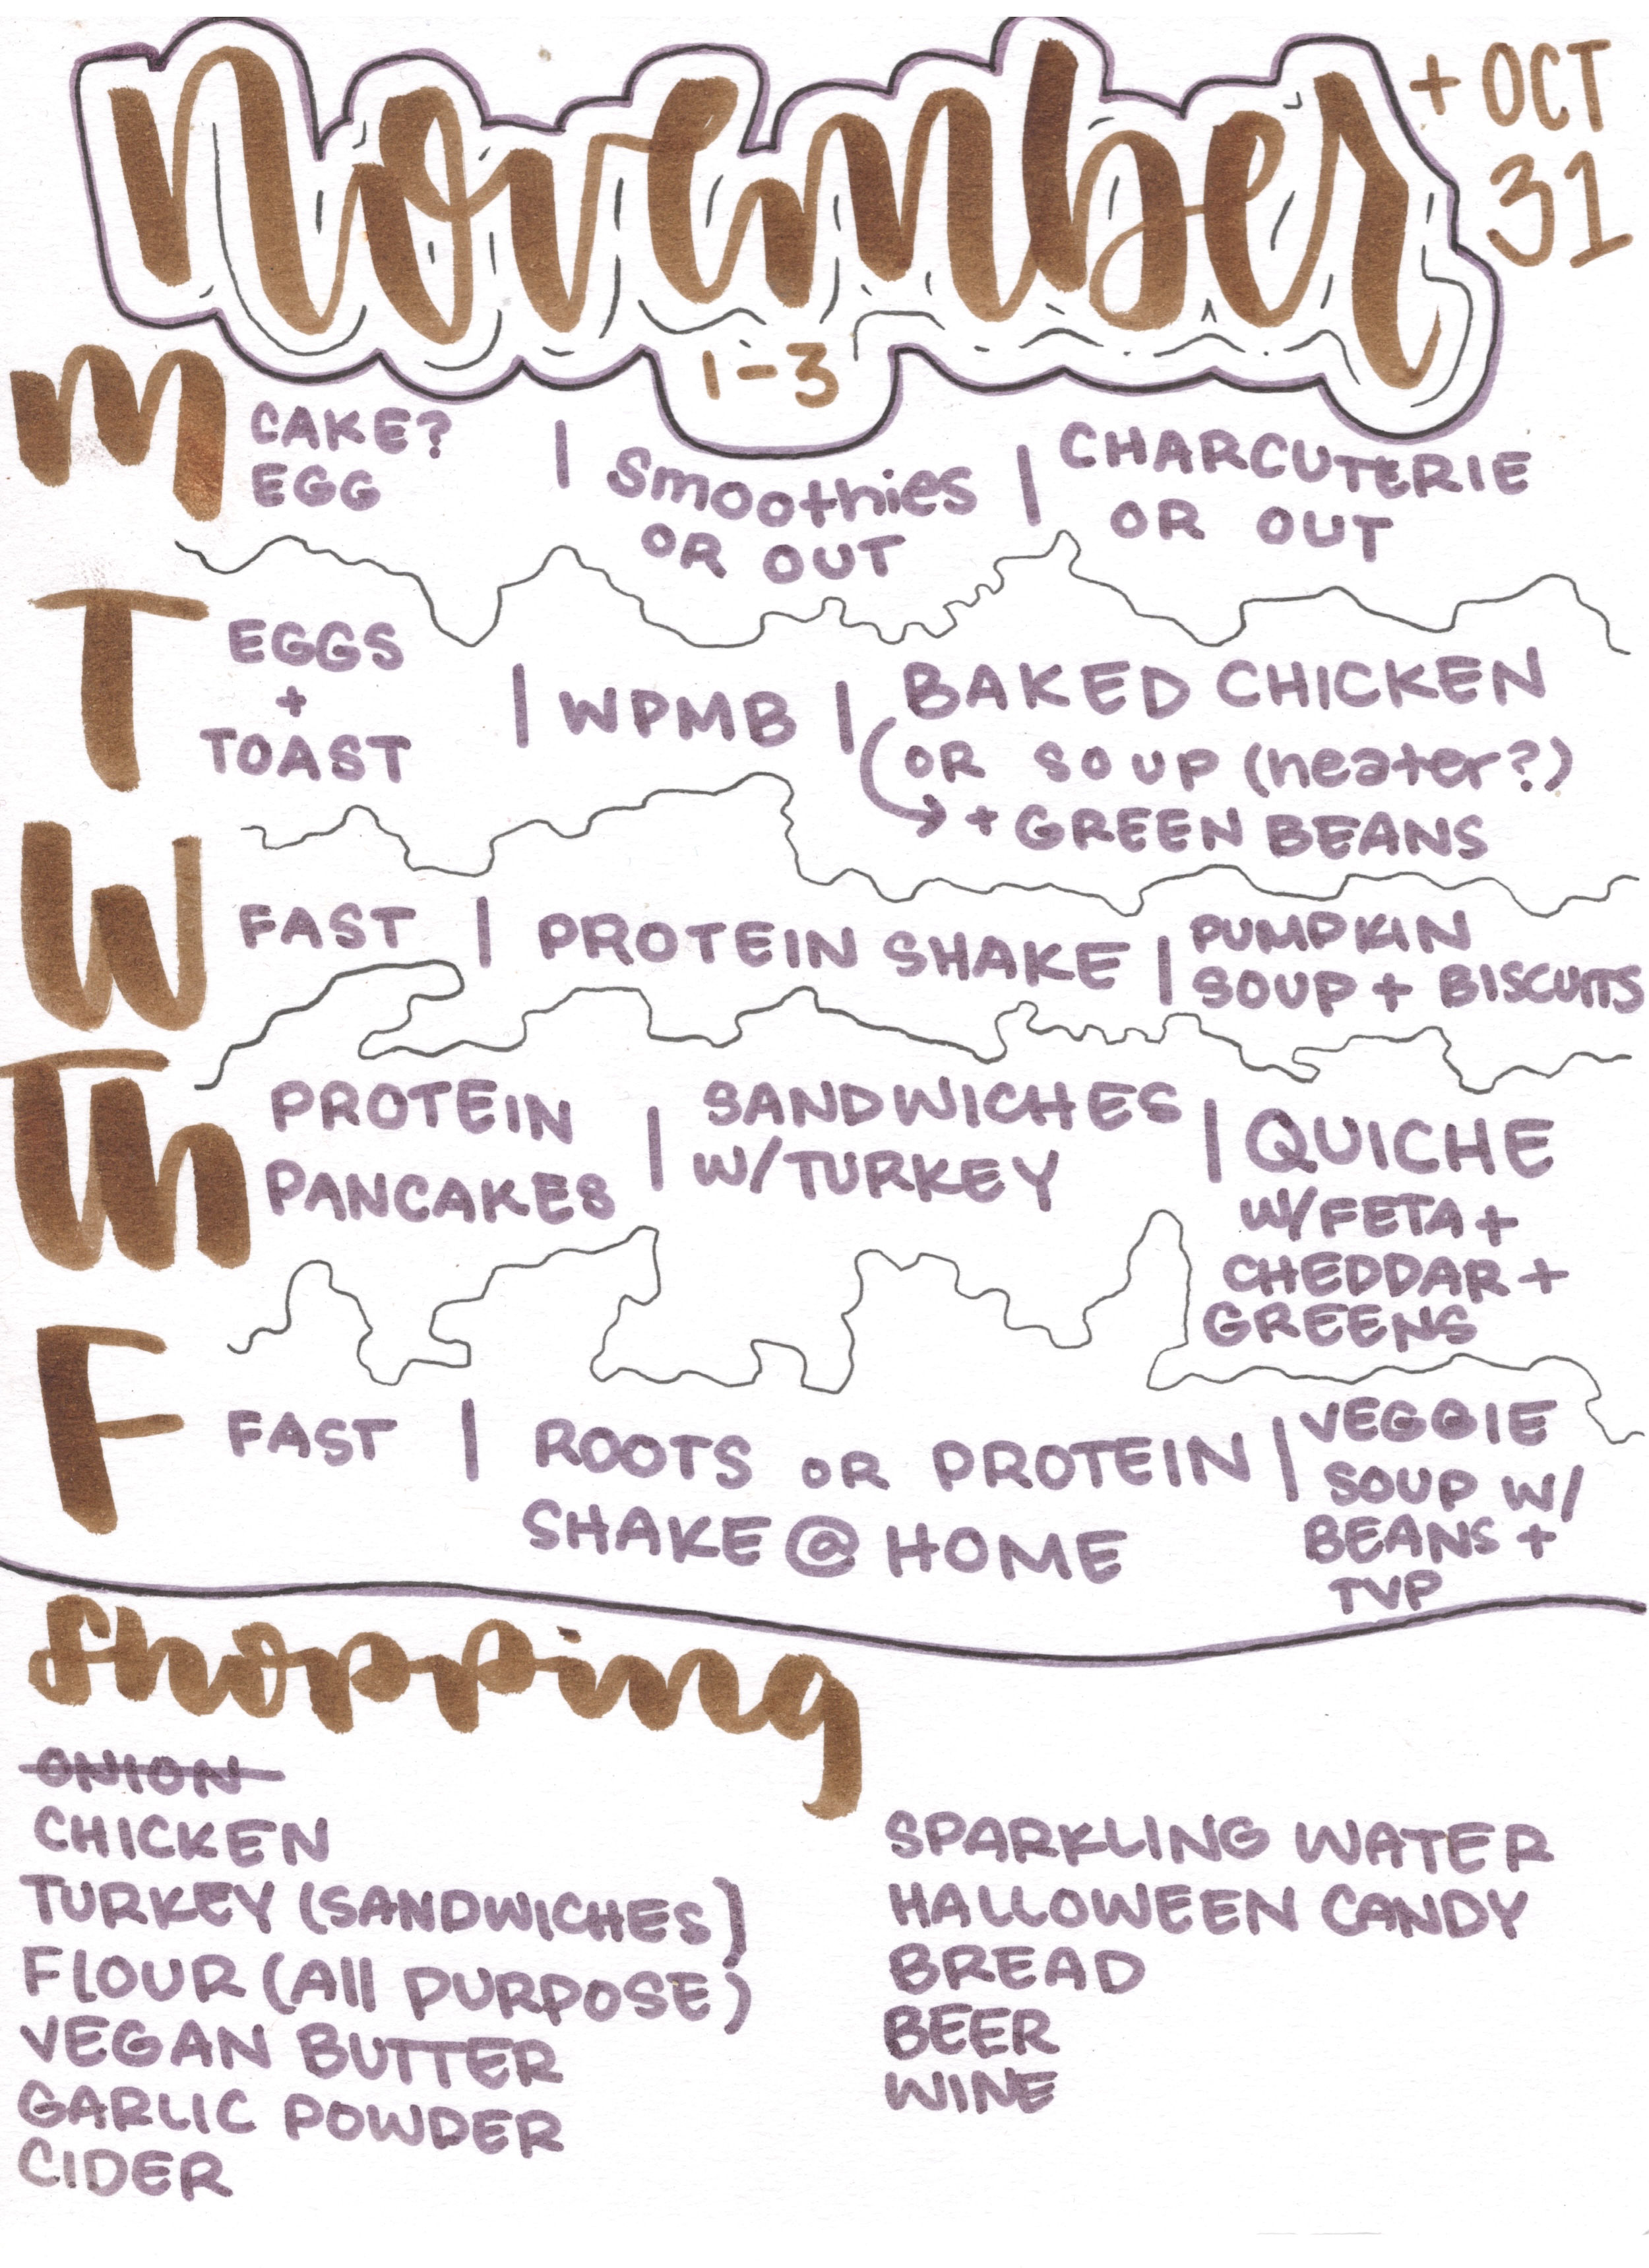 November
+ OCT
31
1-3
M
CAKE?
EGG
| Smoothies
OR OUT
| CHARCUTERIE
OR OUT
T
EGGS
+
TOAST
| WPMB |
BAKED CHICKEN
OR SOUP (neater?)
→ + GREEN BEANS
W
FAST | PROTEIN SHAKE |
PUMPKIN
SOUP + BISCUITS
Th
PROTEIN
PANCAKES
| SANDWICHES
W/TURKEY
| QUICHE
W/FETA +
CHEDDAR +
GREENS
F
FAST | ROOTS OR PROTEIN
SHAKE @ HOME
| VEGGIE
SOUP W/
BEANS +
TVP
Shopping
ONION
CHICKEN
TURKEY (SANDWICHES)
FLOUR (All PURPOSE)
VEGAN BUTTER
GARLIC POWDER
CIDER
SPARKLING WATER
HALLOWEEN CANDY
BREAD
BEER
WINE